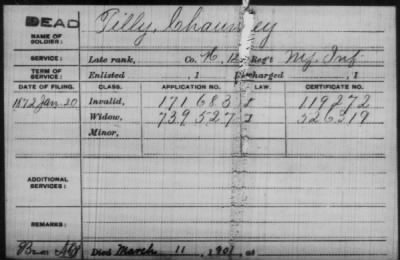 DEAD
Tilly, Chauncey
NAME OF SOLDIER:
SERVICE: Late rank, Co. H, 12 Reg't Inf
TERM OF SERVICE: Enlisted , 1 Discharged , 1
DATE OF FILING. CLASS. APPLICATION NO. LAW. CERTIFICATE NO.
1872 Jan. 20 Invalid, 171683 119,272
Widow, 739,527 526319
Minor,
ADDITIONAL SERVICES:
REMARKS:
Died March 11, 1901, at